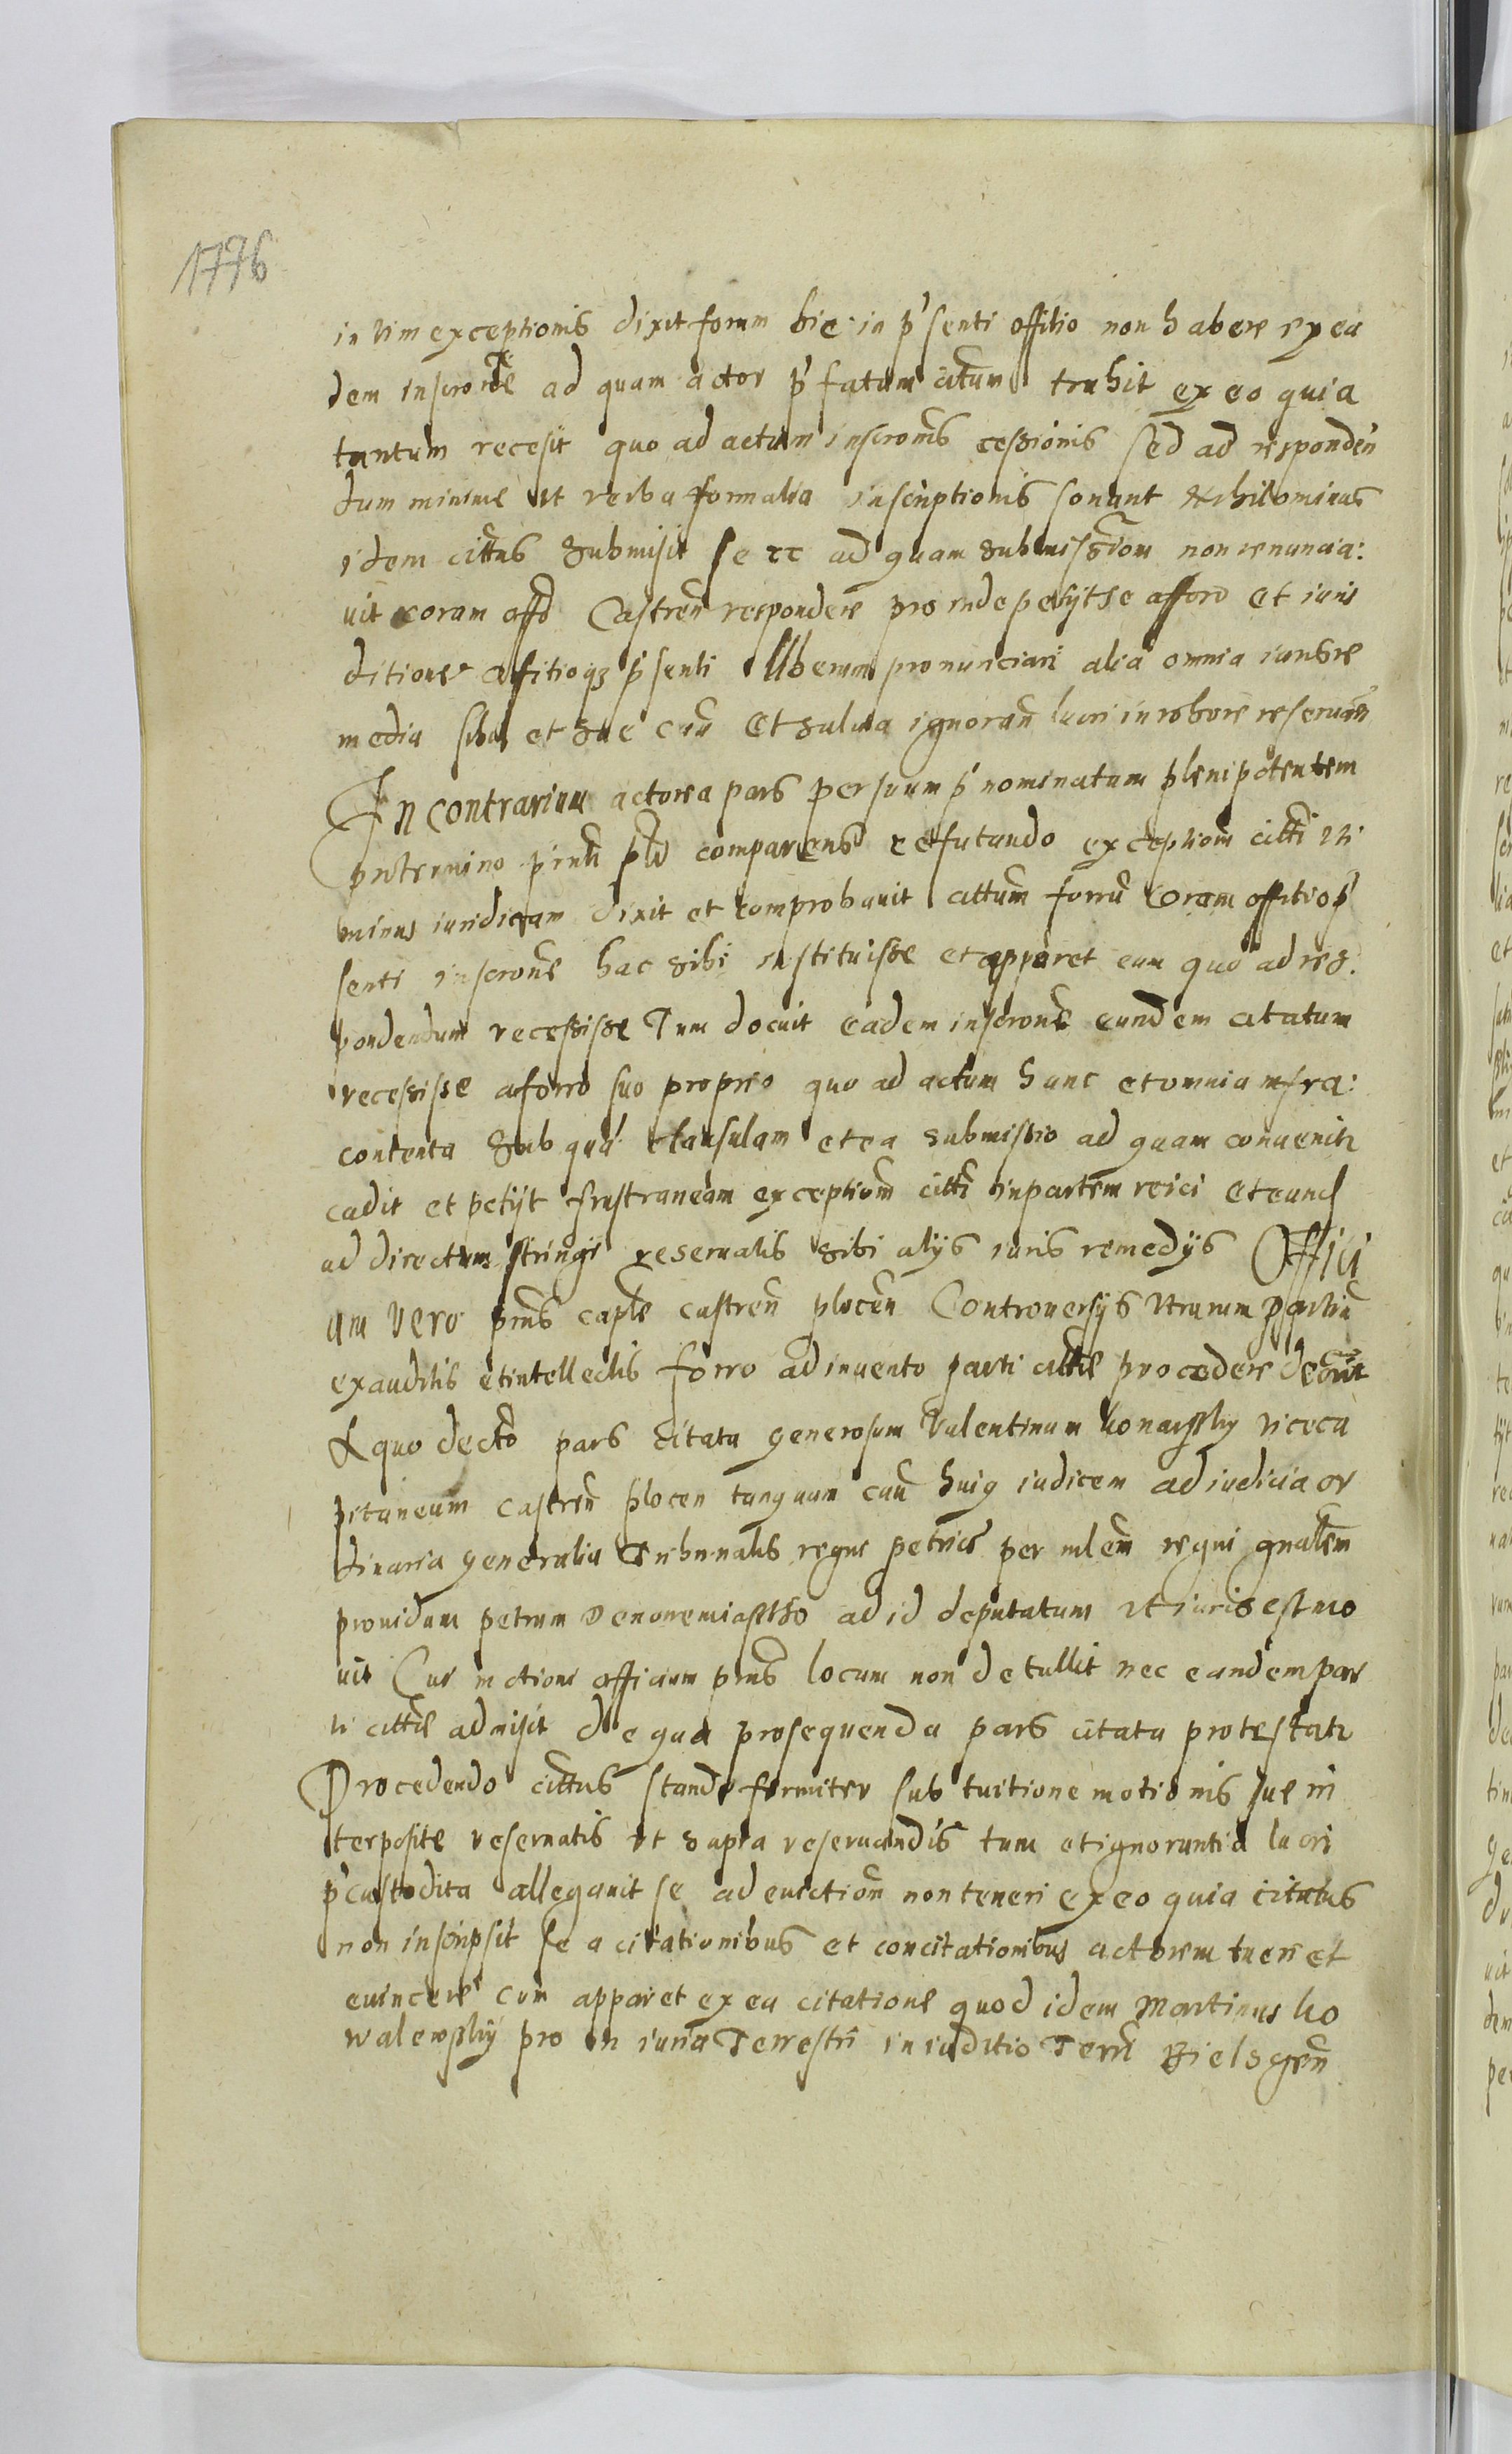 1776
in vim exceptionis dixit forum hic in p'senti offitio non habere ex ea
dem inscrone ad quam actor p'fatum cittum trahit ex eo quia
tantum recesit quo ad actum inscronis cessionis sed ad responden
dum minime ut verba formalia inscriptionis sonant Et nihilominus
idem cittus submisit se etc ad quam submissionem non renuncia:
uit coram offo Castren respondere pro inde petyt se a foro et iuris
ditione offitioq3 p'senti liberum pronunciari alia omnia iuris re
media sibi et sue cau Et salua ignoran lucri in robore reseruan
In contrarium actorea pars per suum p'nominatum plenipotentem
in termino pinti pto comparens refutando exceptiom citti uti
minus iuridicam dixit et comprobauit cittum forru Coram offitio p'
senti inscrone hac sibi instituisse et apparet eum quo ad res:
pondendum recessisse Tum docuit eadem inscrone eundem citatum
recessisse a forro suo proprio quo ad actum hunc et omnia infra:
contenta sub qua clausulam et ea submissio ad quam conuenitr
cadit et petijt frustraneam exceptiom citti in partem reici et eund
ad directum stringi reseruatis sibi alijs iuris remedijs Offici
um Vero pins caple castren plocen Controuersijs Utrarum partiu
exauditis et intellectis forro ad inuento parti citte procedere decreuit
A quo decto pars citata generosum Valentinum Konarsky viceca
pitaneum castren plocen tanquam cau huig iudicem ad iudicia or
dinaria generalia Tribunalis regni petric per mlem regni gnalem
prouidum petrum De nonemiastho ad id deputatum ut iuris est mo
uit Cui motioni officium pins locum non detullit nec eandem par
ti citte admisit de qua prosequenda pars citata protestatr
Procedendo cittus stando firmiter sub tuitione motionis sue in
terposite reseruatis ut supra reseruandis tum et ignorantia lucri
p'custodita allegauit se ad euictiom non teneri ex eo quia citatus
non inscripsit se a citationibus et concitationibus actorem tueri et
euincere cum apparet ex ea citatione quod idem Martinus ko
walewsky pro in iuria Terrestri in iuditio Terri Bielsgen